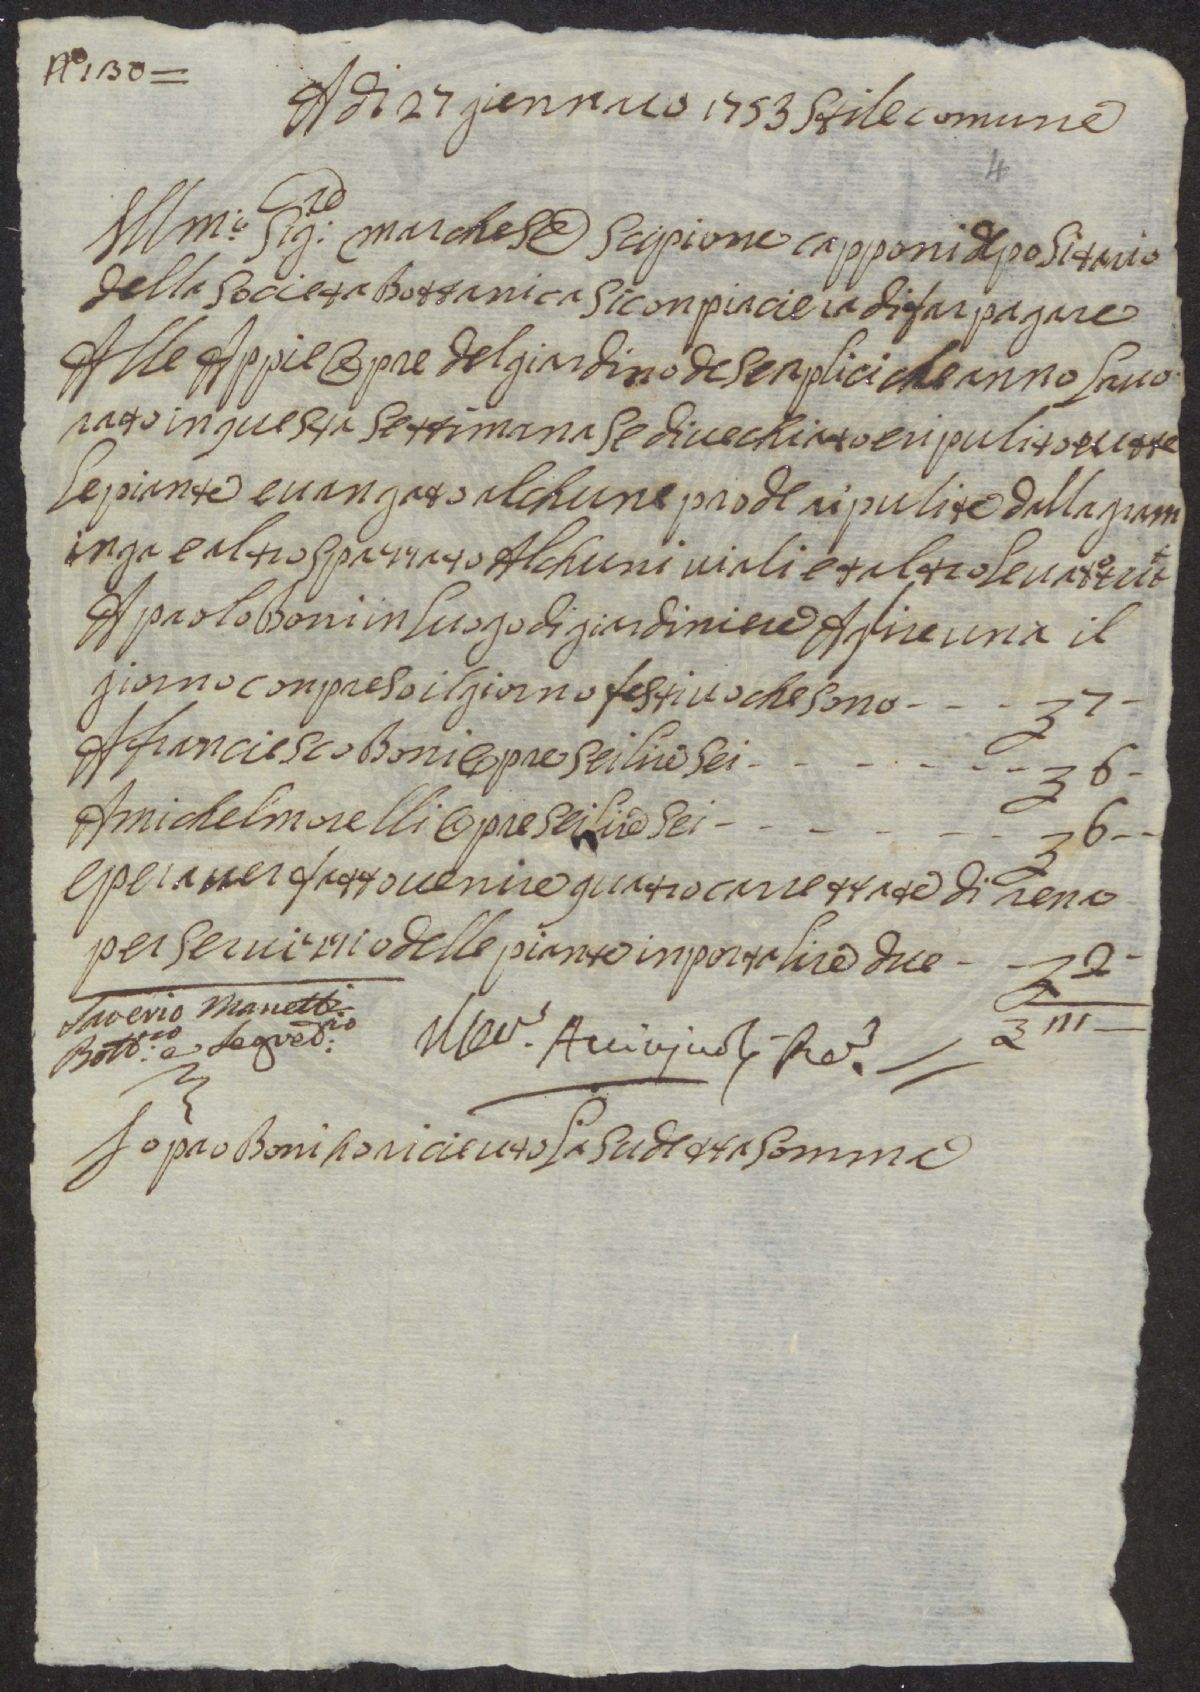 N.o 130 =
A di 27 giennaio 1753 Stile comune
4
Ill.mo Sig.re marchese Scipione capponi depositario
della Societa Bottanica Si conpiaciera di far pagare
Alle Appie Opre del giardino de Senplici che anno Lauo
rato in questa Settimana Se diuechiato e ripulito tutte
Le piante e uangato alchune prode ripulite dalla gram
ingia e altro Spazzato Alchuni uiali et altro Leuato
A paolo Boni in Luogo di giardiniere A lire una il
giorno conpreso il giorno festiuo che sono - - - £ 7 -
A franciesco Boni Opre Sei lire Sei - - - - - - - £ 6 -
A michel morelli Opre Sei lire Sei - - - - - - - £ 6 - -
e per auer fatto uenire quatro carrettate di rena
per Seruizzio delle piante inporta lire due - - £ 2 -
Saverio Manetti
£ 21 -
Bott.co e Segret.rio
Io pao Boni ho ricieuto La Sudetta Somma